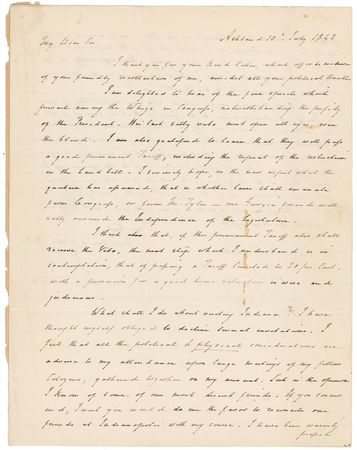 My Dear Sir Ashland 12th July 1842
I thank you for your kind letter, which affords evidence
of your friendly recollection of me, amidst all your political troubles
I am delighted to hear of the fine spirits which
prevail among the Whigs in Congress, notwithstanding the perfidy
of the President. His last silly veto must open all eyes, even
the blind. I am also gratified to learn that they will pass
a good permanent Tariff, including the repeal of the restriction
in the Land bill. I sincerely hope, in the new aspect which the
question has assumed, that is whether laws shall emanate
from Congress, or from Mr Tyler — our Georgia friends will
rally around the Independence of the Legislature.
I think also that, if this permanent Tariff also shall
receive the Veto, the next step which I understand is in
contemplation, that of passing a Tariff limited to 20 per Cent.
with a provision for a good home valuation is wise and
judicious.
What shall I do about visiting Indiana? I have
thought myself obliged to decline several invitations. I
feel that all the political & physical considerations are
adverse to my attendance upon large meetings of my fellow
Citizens, gathered together on my account. Such is the opinion
I know of some of our most discreet friends. If you concur
in it, I wish you would do me the favor to reconcile our
friends at Indianapolis with my course. I have been warmly